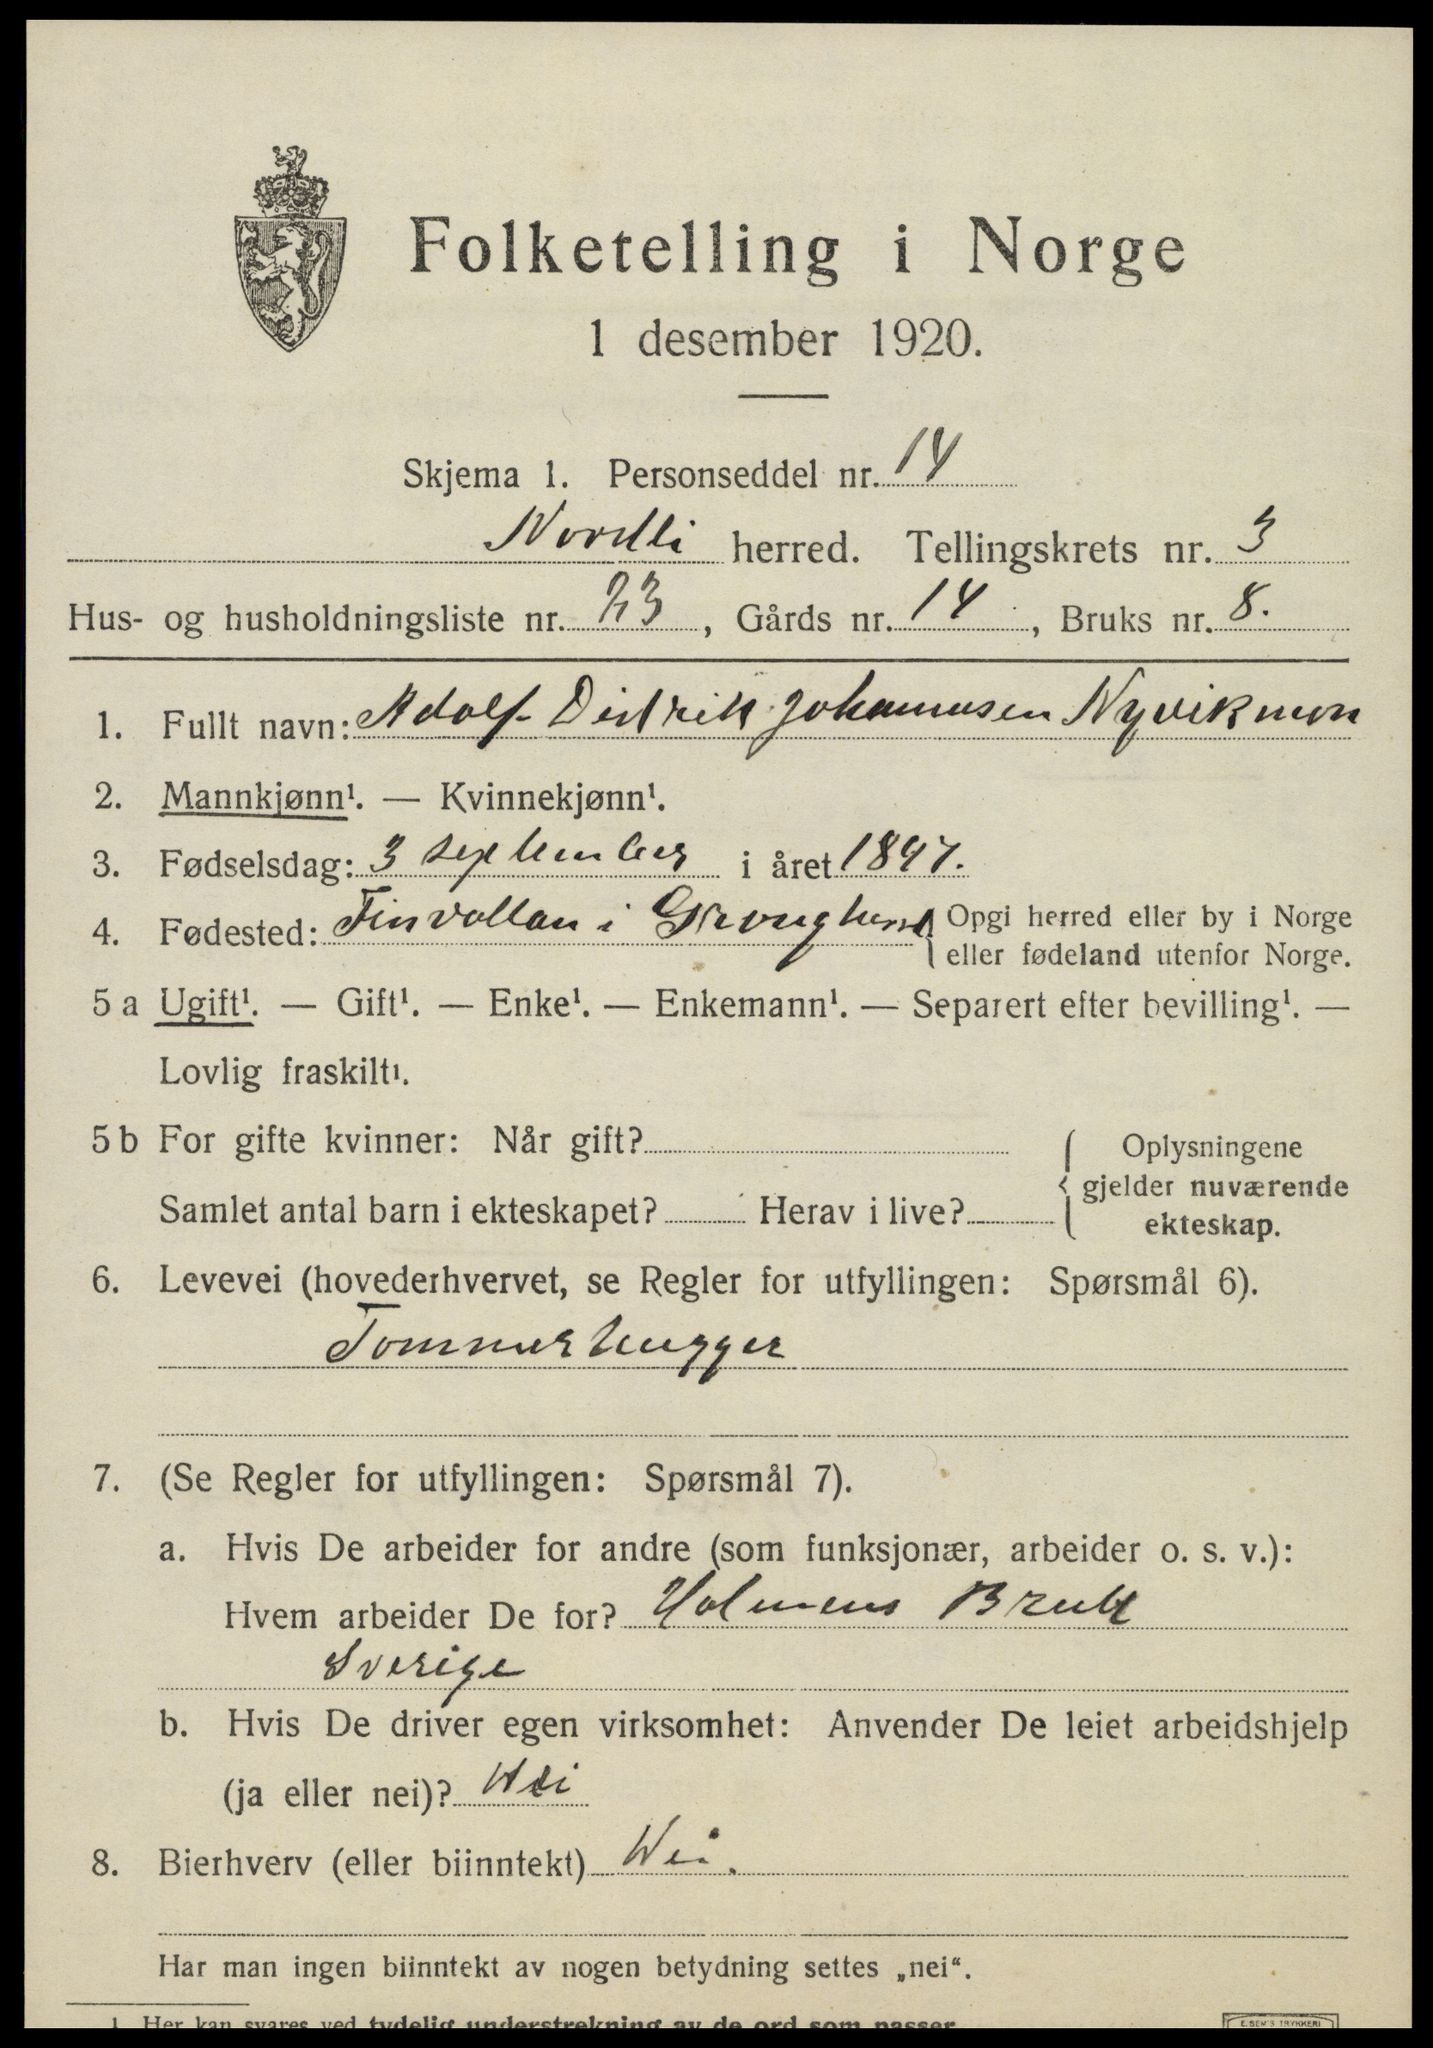 Folketelling i Norge
1 desember 1920.
Skjema 1. Personseddel nr. 14
Nordli herred. Tellingskrets nr. 3
Hus- og husholdningsliste nr. 23, Gårds nr. 14, Bruks nr. 8.
1. Fullt navn: Adolf Didrik Johannesen Nyvikmon
2. Mannkjønn¹. — Kvinnekjønn¹.
3. Fødselsdag: 3 september i året 1897.
4. Fødested: Finvollan i Grong herred { Opgi herred eller by i Norge
eller fødeland utenfor Norge.
5 a Ugift¹. — Gift¹. — Enke¹. — Enkemann¹. — Separert efter bevilling¹. —
Lovlig fraskilt¹.
5 b For gifte kvinner: Når gift?
Samlet antal barn i ekteskapet? Herav i live?
{ Oplysningene
gjelder nuværende
ekteskap.
6. Levevei (hovederhvervet, se Regler for utfyllingen: Spørsmål 6).
Tommerhugger
7. (Se Regler for utfyllingen: Spørsmål 7).
a. Hvis De arbeider for andre (som funksjonær, arbeider o. s. v.):
Hvem arbeider De for? Holmens Bruk
Sverige
b. Hvis De driver egen virksomhet: Anvender De leiet arbeidshjelp
(ja eller nei)? Nei
8. Bierhverv (eller biinntekt) Nei.
Har man ingen biinntekt av nogen betydning settes „nei“.
1 Her kan svares ved tydelig understrekning av de ord som passer.
E. SEM'S TRYKKERI